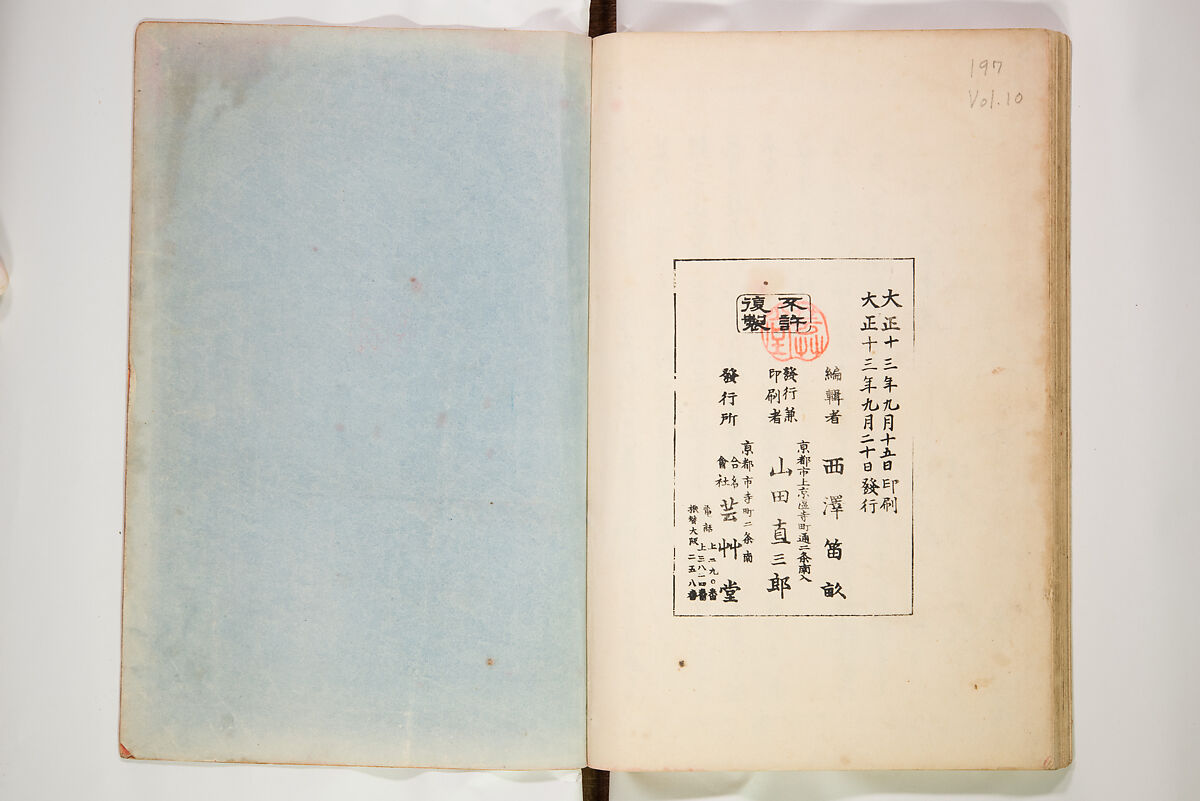 197
Vol.10
大正十三年九月十五日印刷
大正十三年九月二十日發行
不許
復製
編輯者 西澤笛畝
京都市上京區寺町通二条南入
發行兼
印刷者 山田直三郎
京都市寺町二条南
發行所 合名
會社 芸艸堂
電話 上二九〇番
上三八一四番
振替大阪二五八番